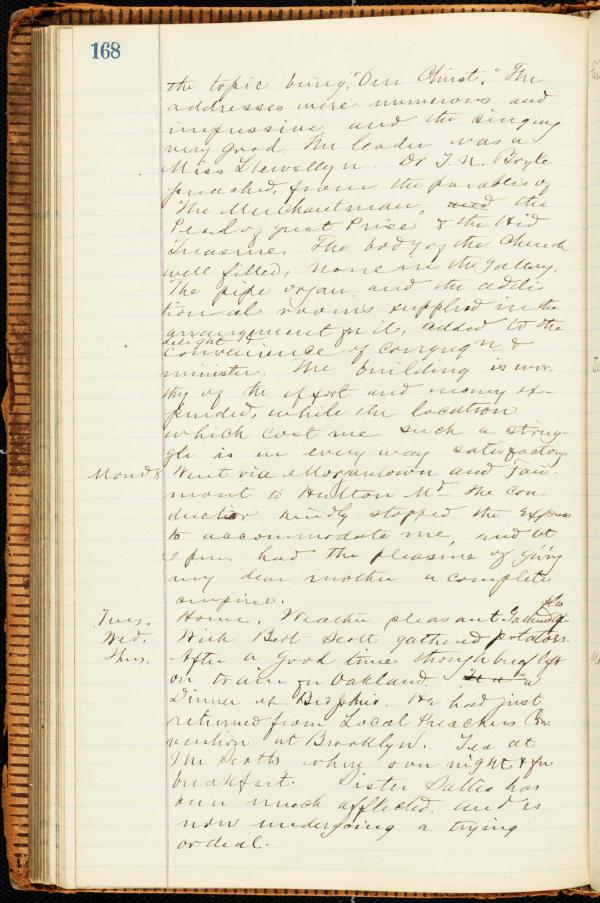 168
the topic being, "Our Christ." The
addresses were numerous and
impressive, and the singing
very good. The leader was a
Miss Llewellyn. Dr T. N. Boyle
preached, from the parables of
"The Merchantman, and the
Pearl of great Price & the Hid
Treasure. The body of the Church
well filled, none in the gallery.
The pipe organ, and the addi-
tional rooms supplied in the
arrangement for it, added to the
delight &
convenience of congregn &
minister. The building is wor-
thy of the effort and money ex-
pended, while the location
which cost me such a strug-
gle is in every way satisfactory
Mond 8 Went via Morgantown and Fair-
mont to Hutton Md. The con-
ductor kindly stopped the Express
to accommodate me, and at
3 pm had the pleasure of giving
my dear mother a complete
surprise.
Tues. Home. Weather pleasant.
Wed. With Bert Scott gathered potatoes.
Thurs. After a good time though brief left
on train for Oakland.
Dinner at Bro He had just
returned from Local Preachers Con
vention at Brooklyn. Tea at
Mr Scotts where over night & for
breakfast. Sister has
been much afflicted. and is
now undergoing a trying
ordeal.